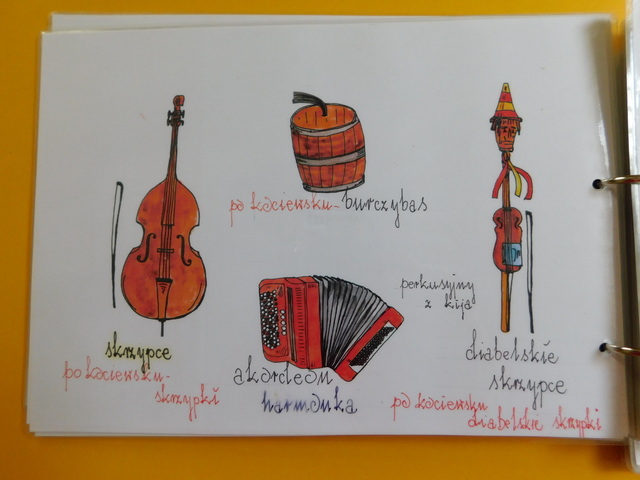 po kociewsku - burczybas
skrzypce
po kociewsku -
skrzypki
akordeon
harmonka
perkusyjny
z kija
diabelskie
skrzypce
po kociewsku
diabelskie skrzypki